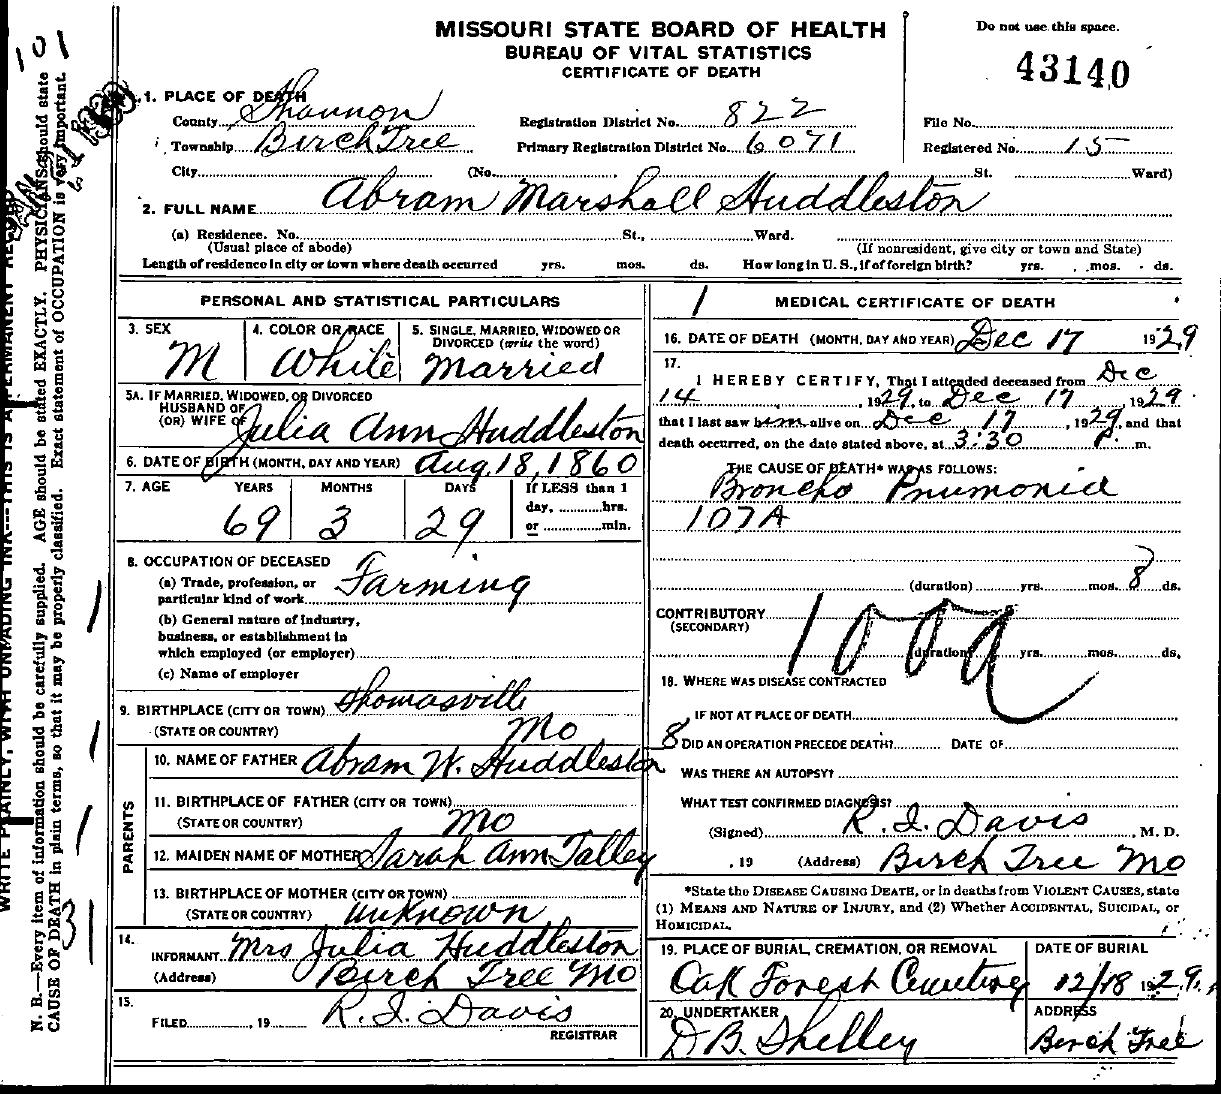 MISSOURI STATE BOARD OF HEALTH
BUREAU OF VITAL STATISTICS
CERTIFICATE OF DEATH
Do not use this space.
43140
101
1. PLACE OF DEATH
County Shannon Registration District No. 822 File No.
Township Birch Tree Primary Registration District No. 6071 Registered No. 15
City (No. St. Ward)
2. FULL NAME Abram Marshall Huddleston
(a) Residence. No. St., Ward.
(Usual place of abode) (If nonresident, give city or town and State)
Length of residence in city or town where death occurred yrs. mos. ds. How long in U. S., if of foreign birth? yrs. mos. ds.
PERSONAL AND STATISTICAL PARTICULARS
3. SEX
M
4. COLOR OR RACE
White
5. SINGLE, MARRIED, WIDOWED OR
DIVORCED (write the word)
Married
5A. IF MARRIED, WIDOWED, OR DIVORCED
HUSBAND OF
(OR) WIFE OF Julia Ann Huddleston
6. DATE OF BIRTH (MONTH, DAY AND YEAR) Aug. 18, 1860
7. AGE YEARS MONTHS DAYS If LESS than 1
day, hrs.
69 3 29 or min.
8. OCCUPATION OF DECEASED
(a) Trade, profession, or
particular kind of work Farming
(b) General nature of Industry,
business, or establishment in
which employed (or employer)
(c) Name of employer
9. BIRTHPLACE (CITY OR TOWN) Thomasville
(STATE OR COUNTRY) Mo
PARENTS
10. NAME OF FATHER Abram W. Huddleston
11. BIRTHPLACE OF FATHER (CITY OR TOWN)
(STATE OR COUNTRY) Mo
12. MAIDEN NAME OF MOTHER Sarah Ann Talley
13. BIRTHPLACE OF MOTHER (CITY OR TOWN)
(STATE OR COUNTRY) Unknown
14.
INFORMANT Mrs Julia Huddleston
(Address) Birch Tree Mo
15.
FILED , 19 R. I. Davis
REGISTRAR
1 MEDICAL CERTIFICATE OF DEATH
16. DATE OF DEATH (MONTH, DAY AND YEAR) Dec 17 1929
17.
I HEREBY CERTIFY, That I attended deceased from Dec
14, 1929, to Dec 17, 1929
that I last saw him alive on Dec 17, 1929, and that
death occurred, on the date stated above, at 3:30 P. m.
THE CAUSE OF DEATH* WAS AS FOLLOWS:
Broncho Pnumonia
107A
(duration) yrs. mos. 8 ds.
CONTRIBUTORY
(SECONDARY)
100a
(duration) yrs. mos. ds.
18. WHERE WAS DISEASE CONTRACTED
IF NOT AT PLACE OF DEATH
8 DID AN OPERATION PRECEDE DEATH? DATE OF
WAS THERE AN AUTOPSY?
WHAT TEST CONFIRMED DIAGNOSIS?
(Signed) R. I. Davis, M. D.
, 19 (Address) Birch Tree Mo
*State the DISEASE CAUSING DEATH, or in deaths from VIOLENT CAUSES, state
(1) MEANS AND NATURE OF INJURY, and (2) Whether ACCIDENTAL, SUICIDAL, or
HOMICIDAL.
19. PLACE OF BURIAL, CREMATION, OR REMOVAL
Oak Forest Cemetery
DATE OF BURIAL
12/18 1929
20. UNDERTAKER
D B. Shelley
ADDRESS
Birch Tree
WRITE PLAINLY, WITH UNFADING INK---THIS IS A PERMANENT RECORD
N. B.—Every item of information should be carefully supplied. AGE should be stated EXACTLY. PHYSICIANS should state
CAUSE OF DEATH in plain terms, so that it may be properly classified. Exact statement of OCCUPATION is very important.
31